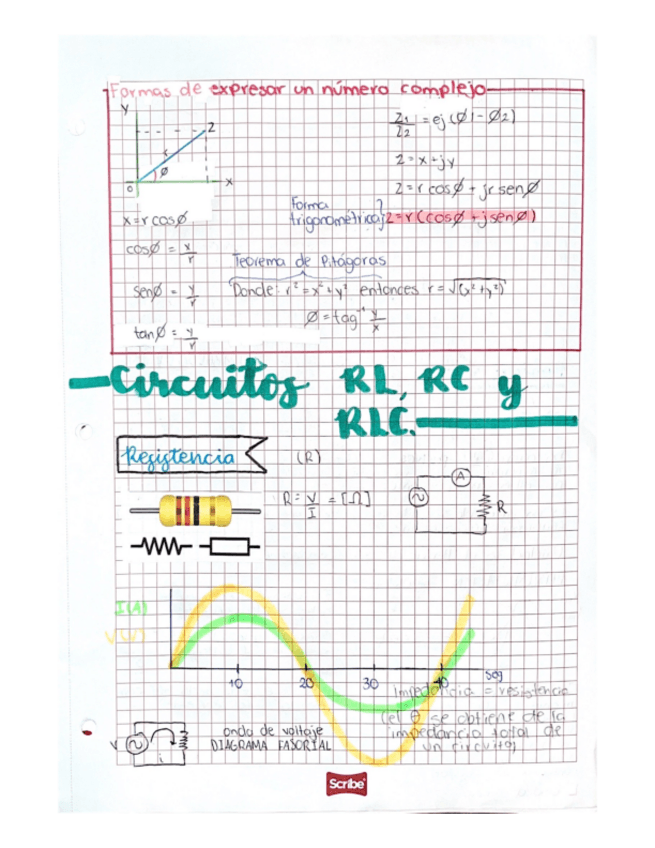 Formas de expresar un número complejo
Y
Z
r
ø
o
x
x = r cosø
cosø = x/r
senø = y/r
tanø = y/r
Z1/Z2 = ej (ø1 - ø2)
Z = x + jy
Z = r cosø + jr senø
Forma
trigonométrica} Z = r (cosø + j senø)
Teorema de Pitágoras
Donde: r² = x² + y² entonces r = √(x² + y²)
ø = tag⁻¹ y/x
Circuitos RL, RC y
RLC.
Resistencia
(R)
R = V/I = [Ω]
A
R
I(A)
V(v)
10
20
30
40
seg
Impedancia = resistencia
(el θ se obtiene de la
impedancia total de
un circuito)
V
i
onda de voltaje
DIAGRAMA FASORIAL
Scribe